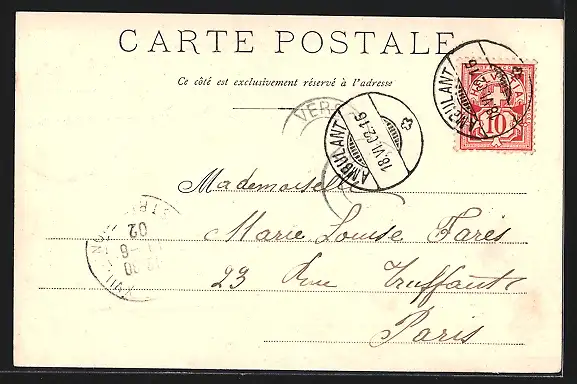 CARTE POSTALE
Ce côté est exclusivement réservé à l'adresse
AMBULANT
18.VI.02-16
AMBULANT
10
VERS
Mademoiselle
Marie Louise Farés
23 Rue Truffaut
Paris
02